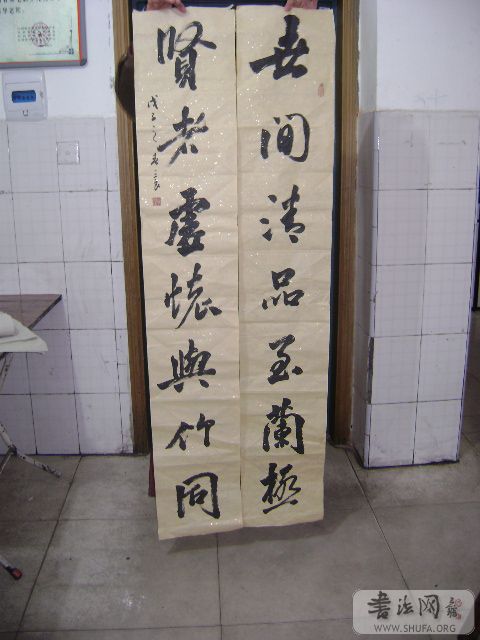 世間清品至蘭極
賢者虛懷與竹同
戊子之春
書法网
WWW.SHUFA.ORG